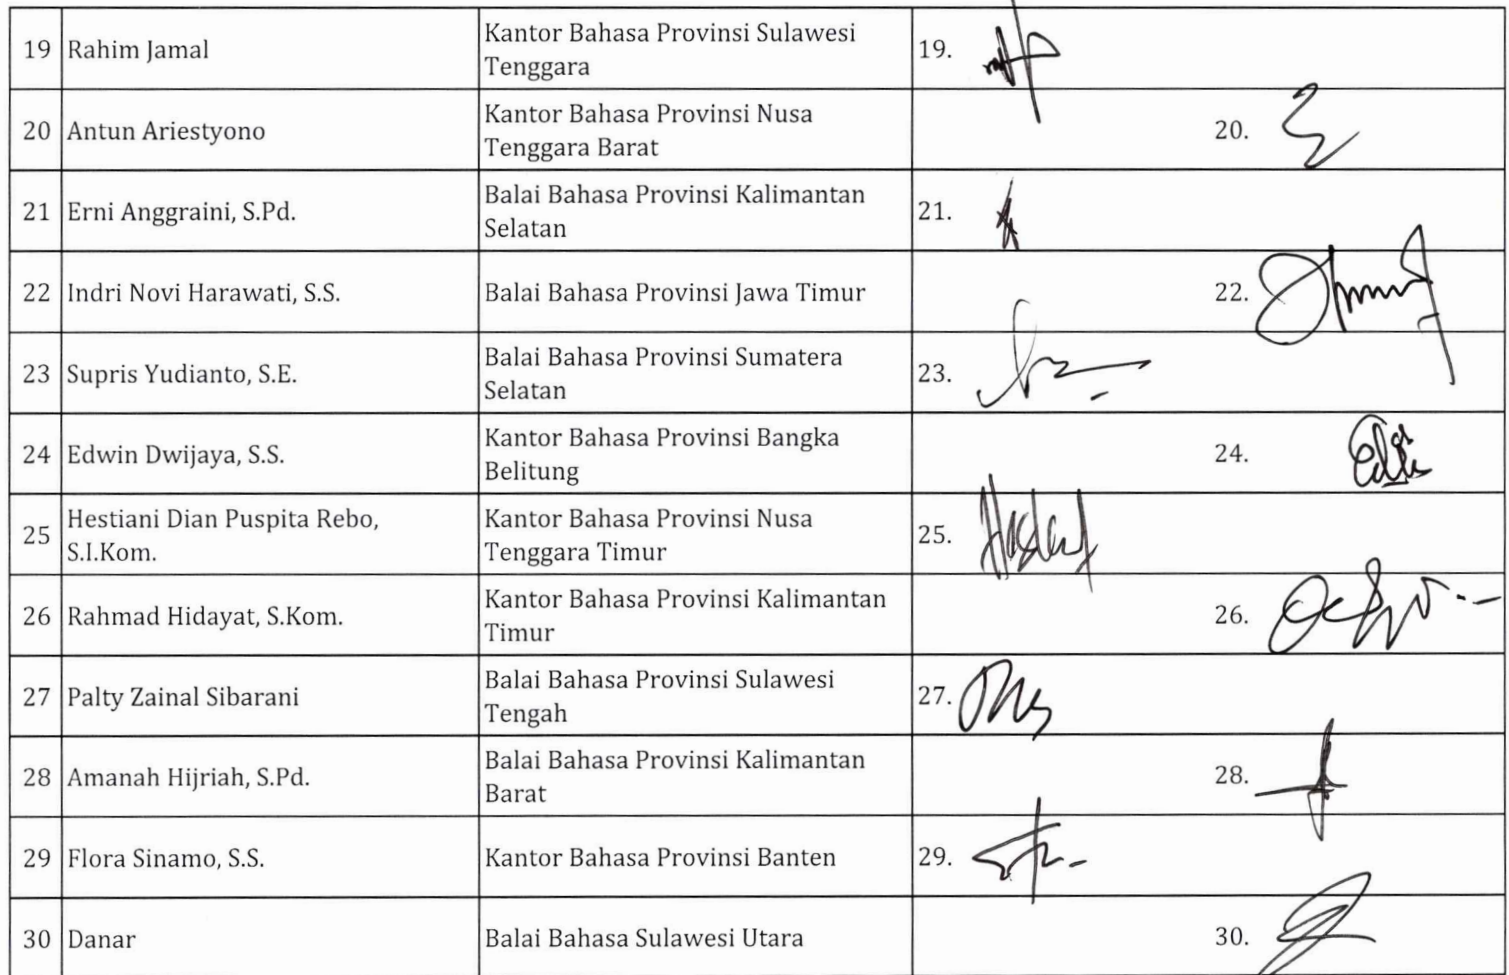 19 Rahim Jamal Kantor Bahasa Provinsi Sulawesi Tenggara 19.
20 Antun Ariestyono Kantor Bahasa Provinsi Nusa Tenggara Barat 20.
21 Erni Anggraini, S.Pd. Balai Bahasa Provinsi Kalimantan Selatan 21.
22 Indri Novi Harawati, S.S. Balai Bahasa Provinsi Jawa Timur 22.
23 Supris Yudianto, S.E. Balai Bahasa Provinsi Sumatera Selatan 23.
24 Edwin Dwijaya, S.S. Kantor Bahasa Provinsi Bangka Belitung 24.
25 Hestiani Dian Puspita Rebo, S.I.Kom. Kantor Bahasa Provinsi Nusa Tenggara Timur 25.
26 Rahmad Hidayat, S.Kom. Kantor Bahasa Provinsi Kalimantan Timur 26.
27 Palty Zainal Sibarani Balai Bahasa Provinsi Sulawesi Tengah 27.
28 Amanah Hijriah, S.Pd. Balai Bahasa Provinsi Kalimantan Barat 28.
29 Flora Sinamo, S.S. Kantor Bahasa Provinsi Banten 29.
30 Danar Balai Bahasa Sulawesi Utara 30.